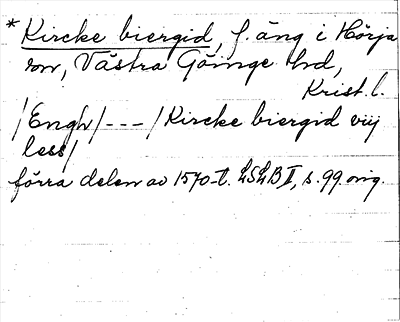 * Kircke biergid, f. äng i Hörja
sn, Västra Göinge hd,
Krist. l.
/Engh/ --- / Kircke biergid vij
less/
förra delen av 1570-t. LSLB II, s. 99 orig.